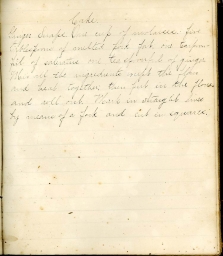 Cake
Ginger Snaps One cup of molasses five
tablespoons of melted pork fat, one teaspoon
ful of saleratus one teaspoonful of ginger
Mix all the ingredients except the flour
and heat together then put in the flour
and roll out. Mark in straight lines
by means of a fork and cut in squares.